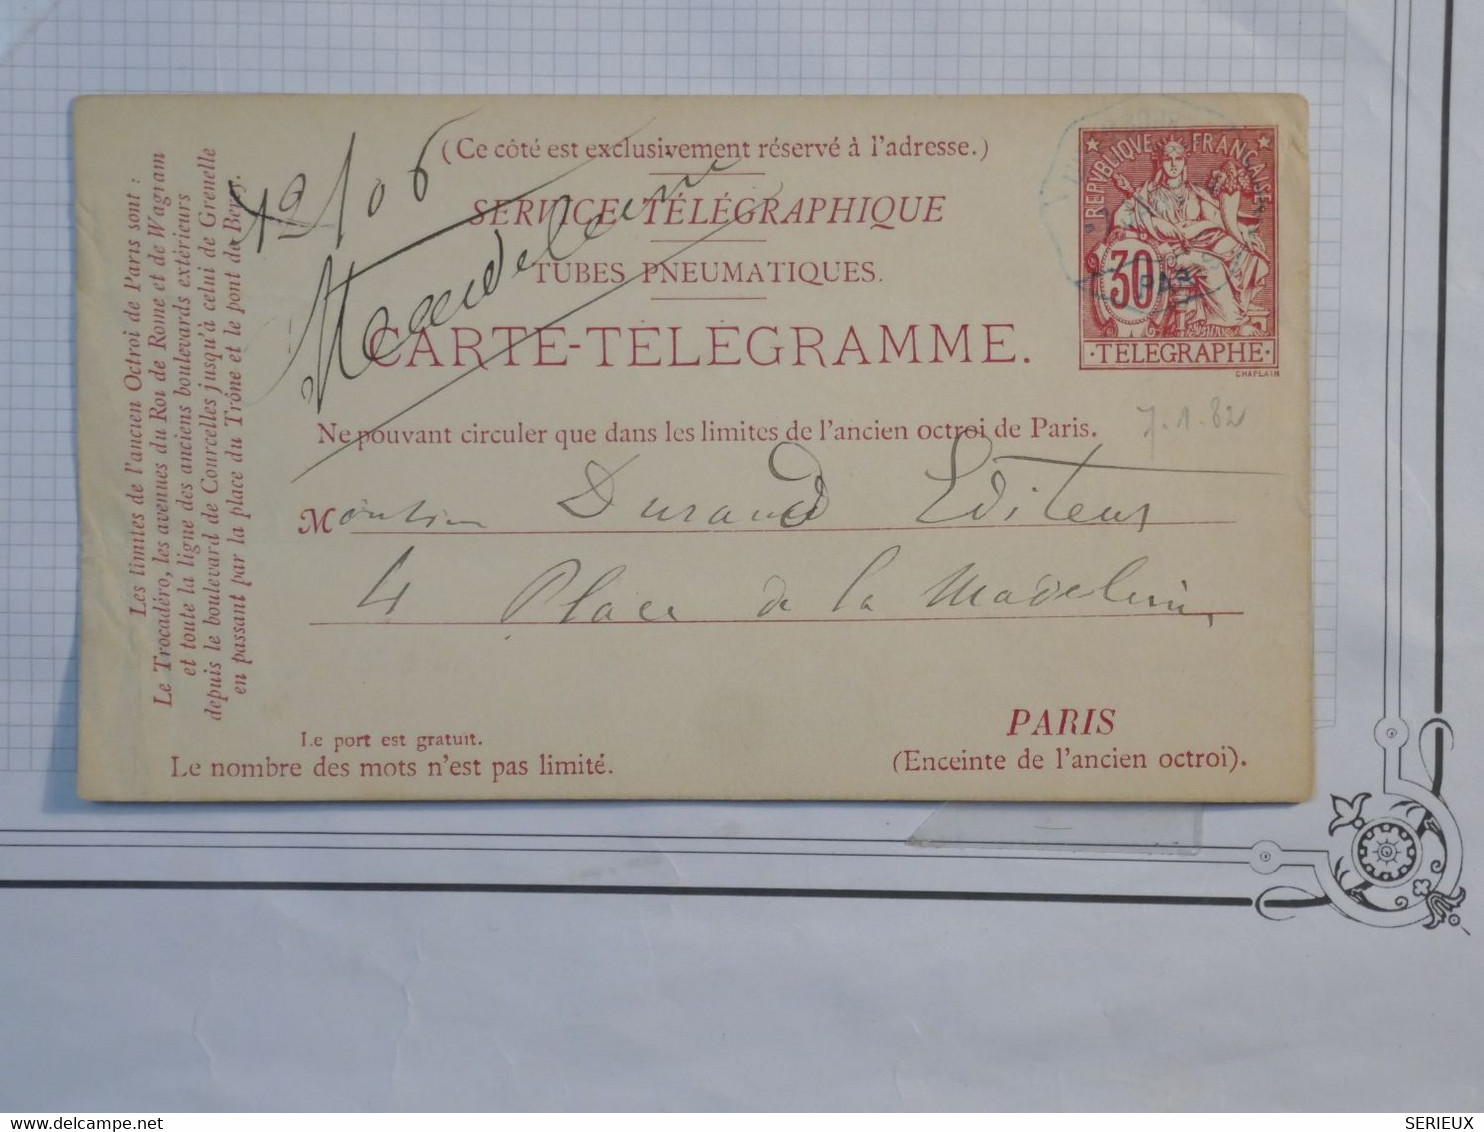 (Ce côté est exclusivement réservé à l'adresse.)
SERVICE TÉLÉGRAPHIQUE
TUBES PNEUMATIQUES.
CARTE-TÉLÉGRAMME.
Ne pouvant circuler que dans les limites de l'ancien octroi de Paris.
Monsieur Durand Editeur
4 Place de la Madeleine
PARIS
(Enceinte de l'ancien octroi).
Le port est gratuit.
Le nombre des mots n'est pas limité.
Les limites de l'ancien Octroi de Paris sont :
Le Trocadéro, les avenues du Roi de Rome et de Wagram
et toute la ligne des anciens boulevards extérieurs
depuis le boulevard de Courcelles jusqu'à celui de Grenelle
en passant par la place du Trône et le pont de Bercy.
Madeleine
REPVBLIQVE FRANÇAISE
30
·TELEGRAPHE·
CHAPLAIN
PARIS
7.1.82
www.delcampe.net
SERIEUX